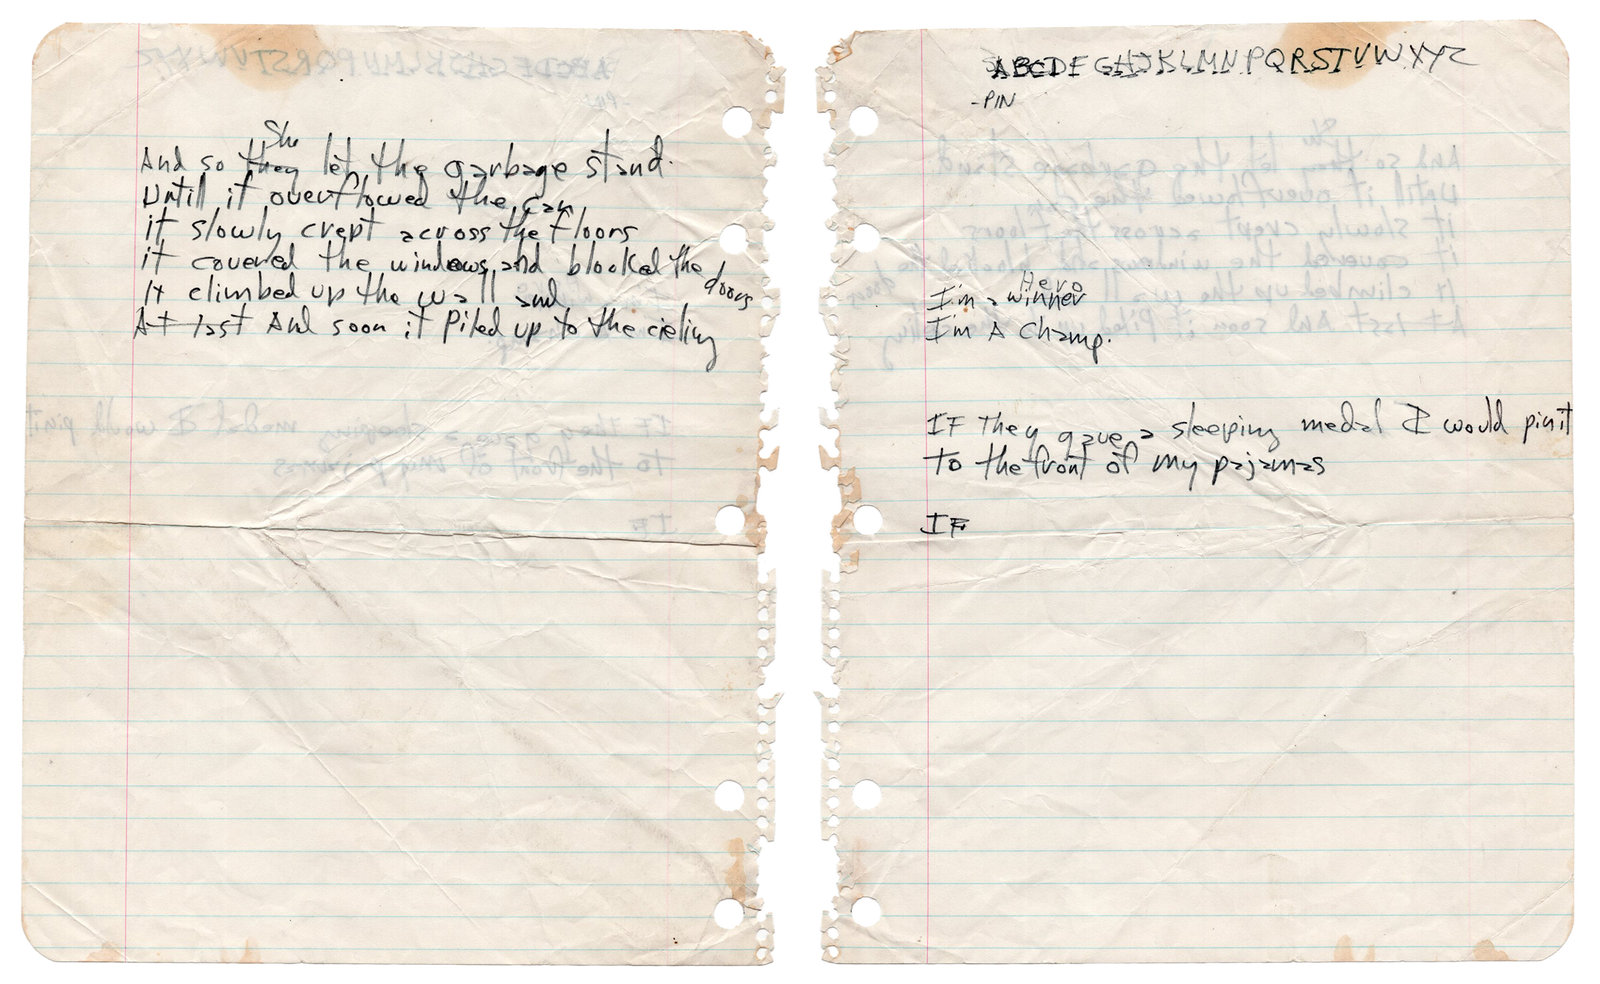 She
And so they let the garbage stand.
Until it overflowed the can
it slowly crept across the floors
it covered the windows and blocked the doors
It climbed up the wall and
At last And soon it piled up to the cieling
ABCDEFGHIJKLMNPQRSTUVWXYZ
-PIN
Hero
I'm a winner
I'm A champ.
IF they gave a sleeping medal I would pin it
To the front of my pajamas
IF